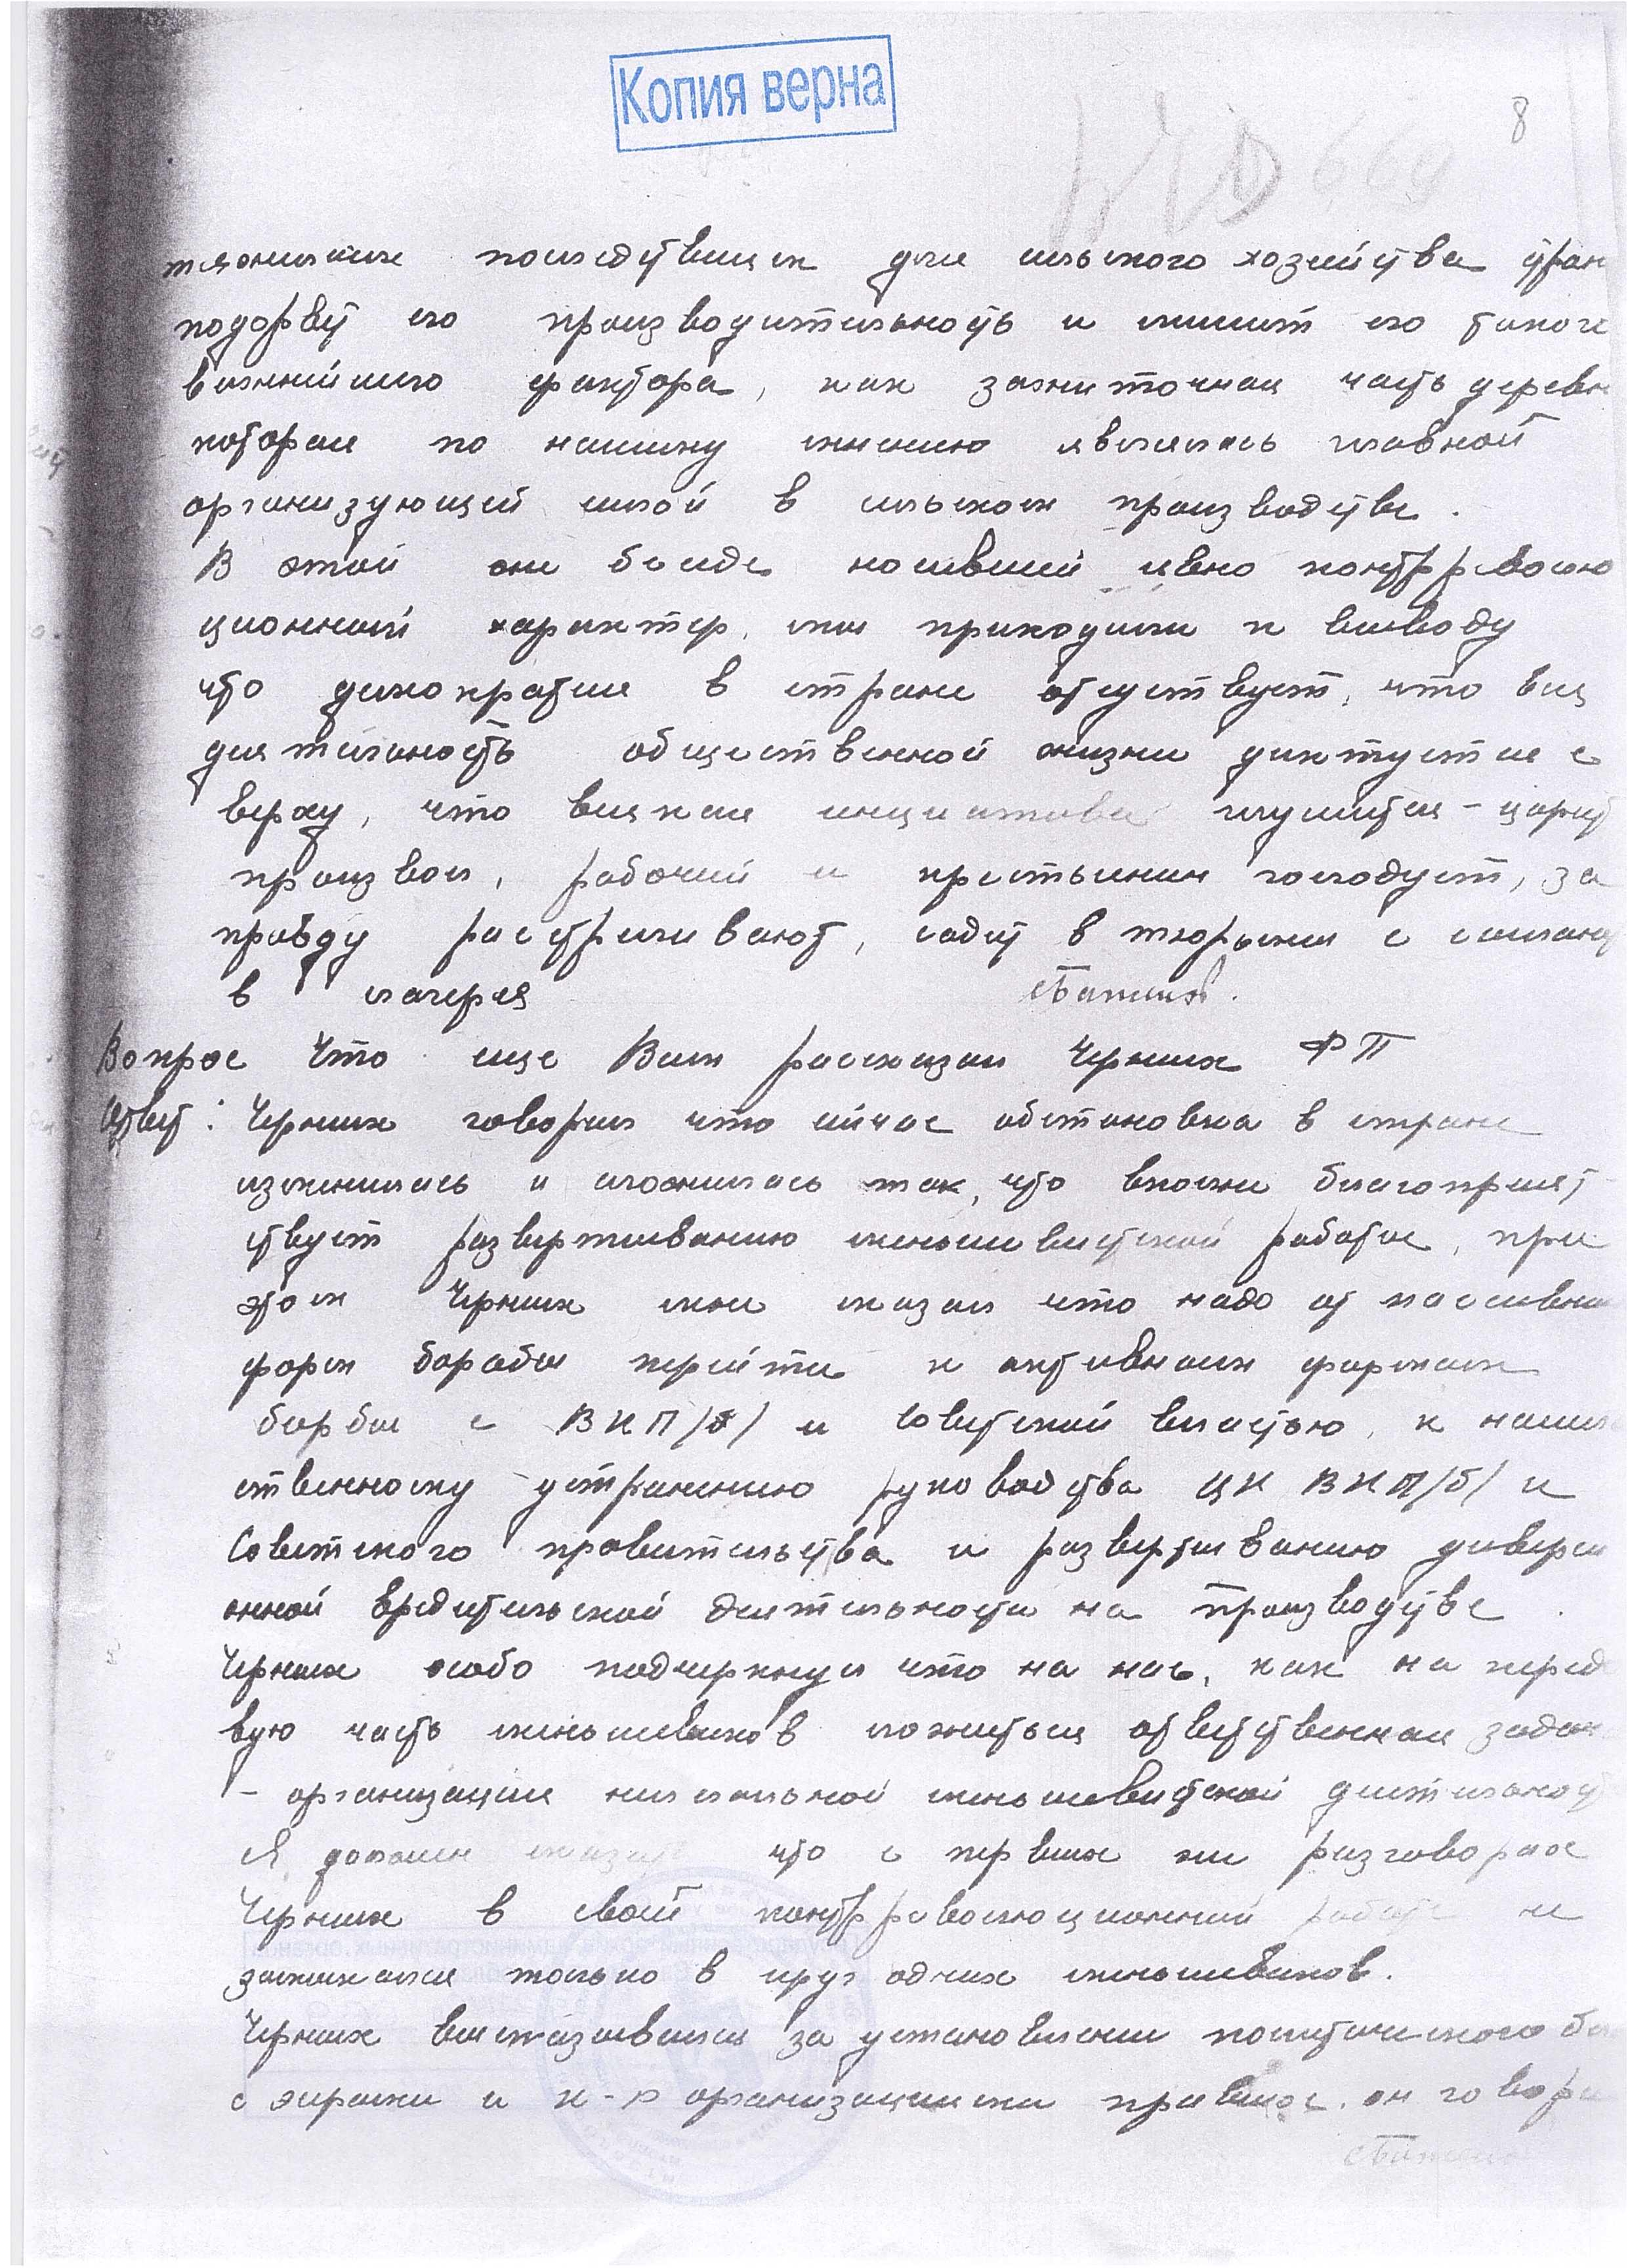 Копия верна
8
664
тяжелыми последствиям для сельского хозяйства стран
подорвут его производительность и лишит его такого
важнейшего фактора, как зажиточная часть деревн
которая по нашему мнению являлась главной
организующей силой в сельском производстве.
В этой же беседе носившей явно контрреволю
ционный характер, мы приходили к выводу
что демократия в стране отсутствует, что вся
деятельность общественной жизни диктуется с
верху, что всякая инциатова глушится - царит
произвол, рабочий и крестьянин голодует, за
правду расстреливают, садят в тюрьмы и ссылают
в лагеря
Вопрос Что еще Вам рассказал Черных ФП
Ответ: Черных говорил что сейчас обстановка в стране
изменилась и сложилась так, что вполне благоприят
ствует развертыванию меньшевистской работы, при
этом Черных мне сказал что надо от пассивны
форм борьбы перейти к активным формам
борьбы с ВКП/б/ и Советской властью, к насил
ственному устранению руководства ЦК ВКП/б/ и
Советского правительства и развертыванию диверси
онной вредительской деятельности на производстве.
Черных особо подчеркнул что на нас, как на перед
вую часть меньшевиков ложиться ответственная задач
- организация нелегальной меньшевистской деятельност
Я должен сказать что с первых же разговорах
Черных в своей контрреволюционной работе не
замыкался только в круг одних меньшевиков.
Черных высказывался за установлении политического бл
с эсерами и к-р организациями правых. он говори